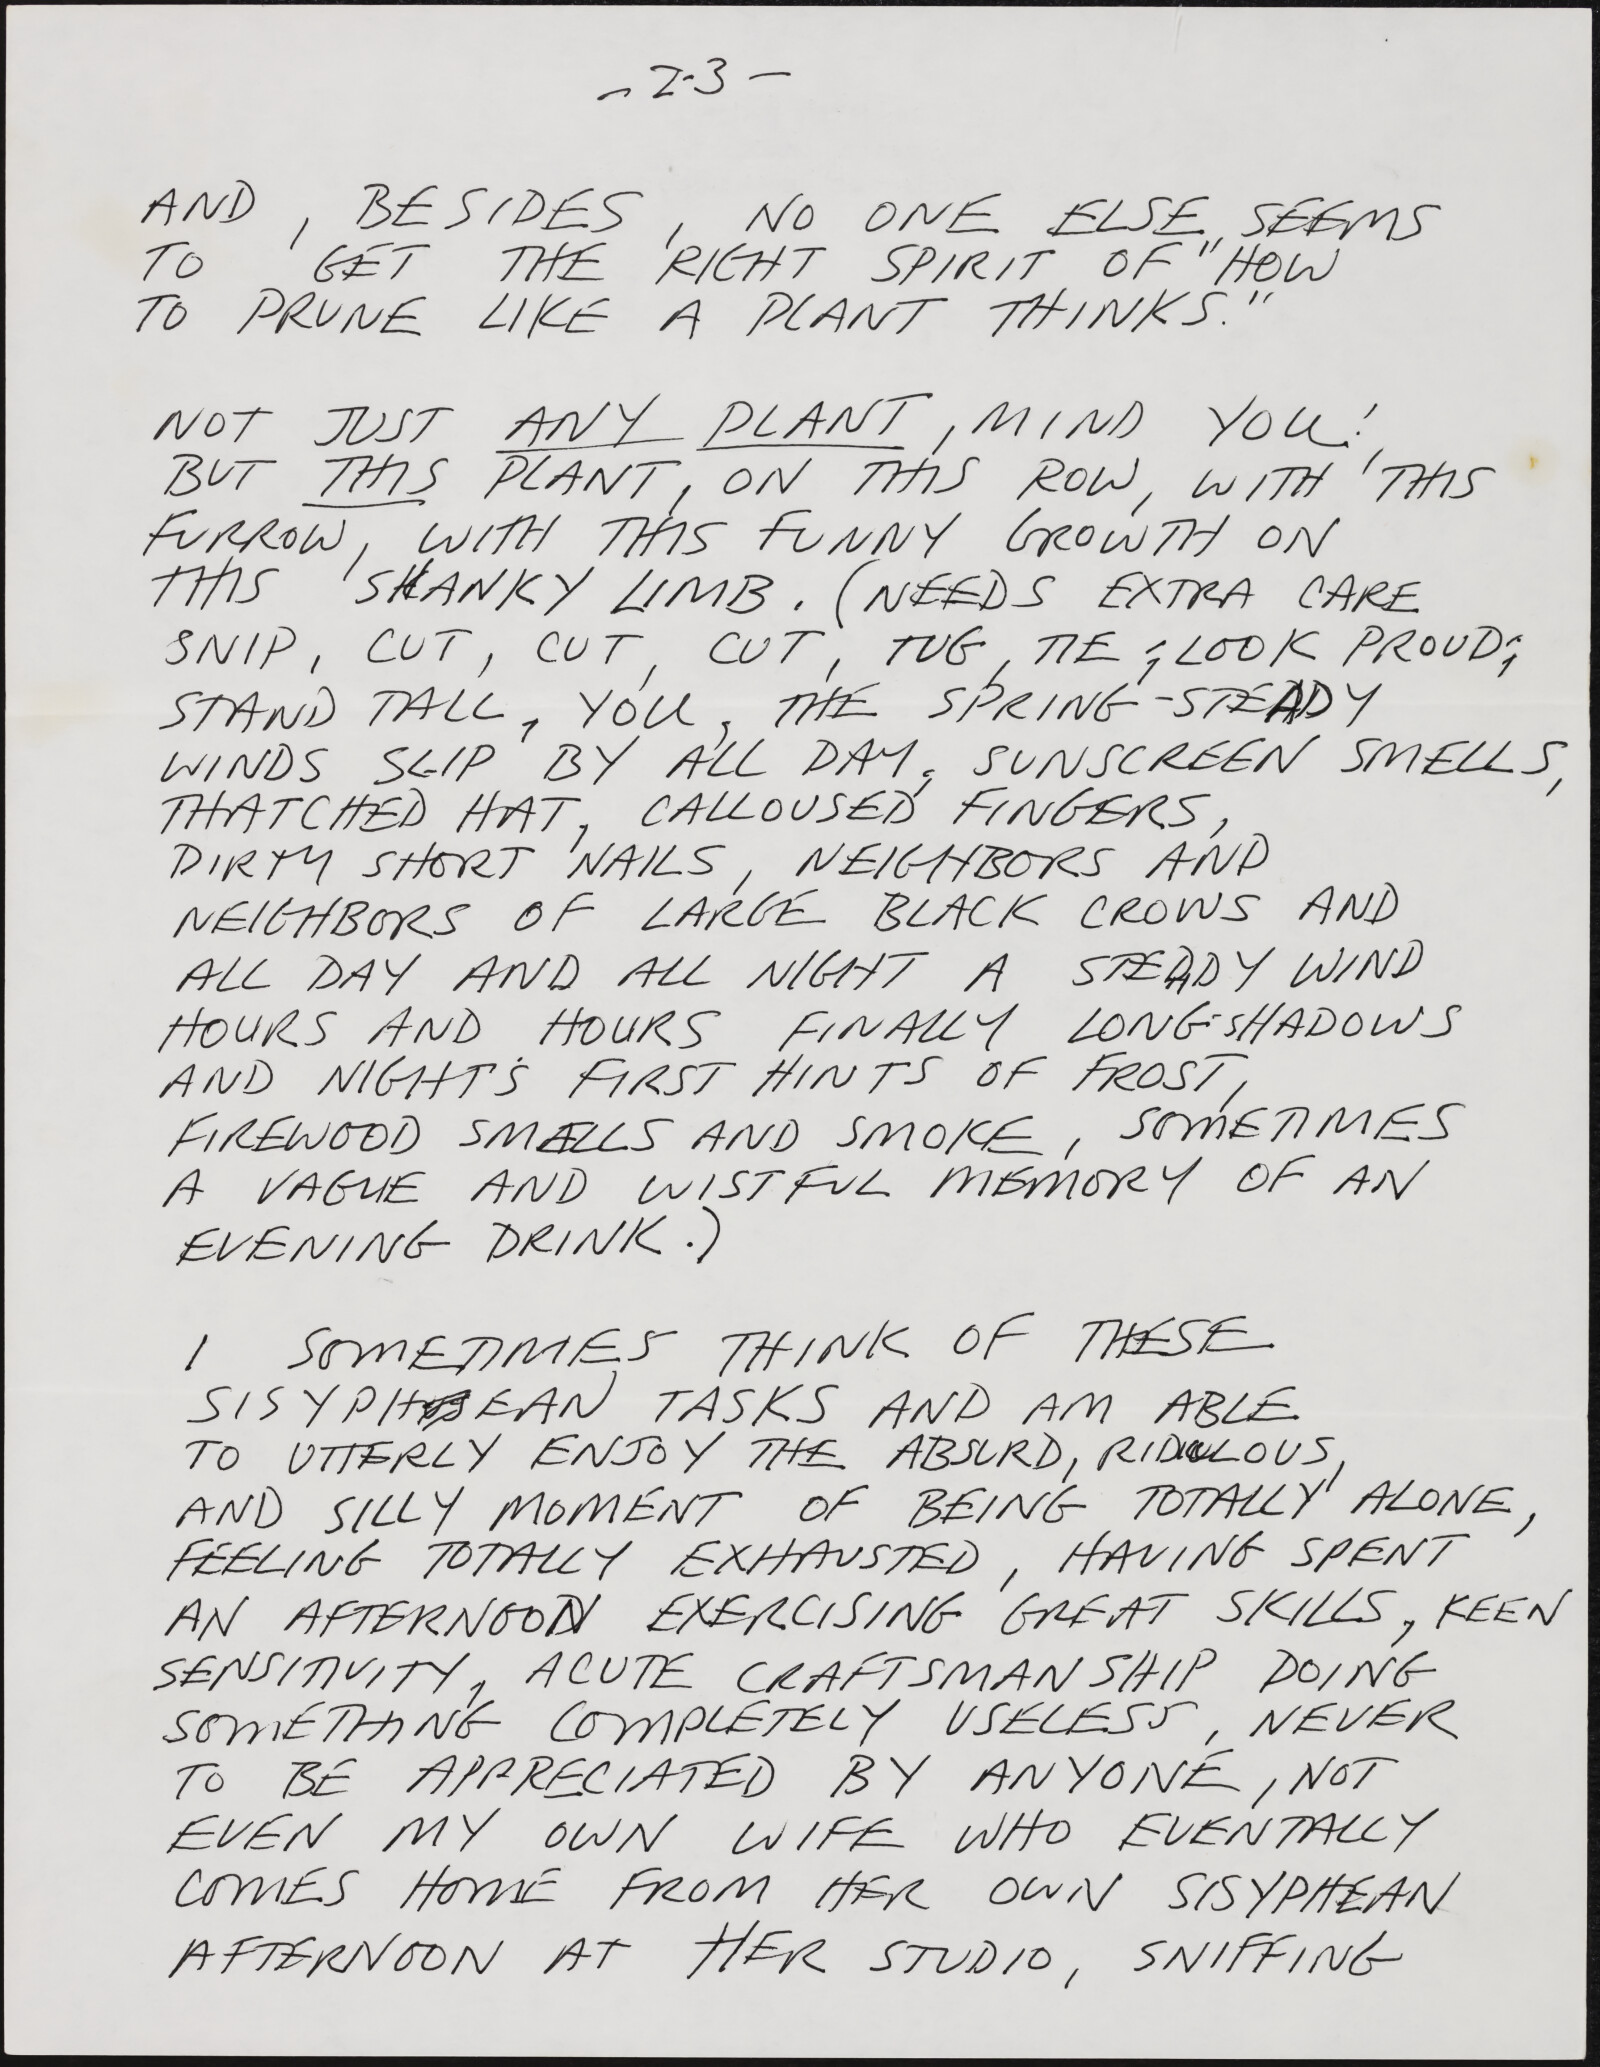 - 2-3 -
AND, BESIDES, NO ONE ELSE SEEMS
TO GET THE RIGHT SPIRIT OF "HOW
TO PRUNE LIKE A PLANT THINKS."
NOT JUST ANY PLANT, MIND YOU!
BUT THIS PLANT, ON THIS ROW, WITH THIS
FURROW, WITH THIS FUNNY GROWTH ON
THIS SKANKY LIMB. (NEEDS EXTRA CARE
SNIP, CUT, CUT, CUT, TUG, TIE; LOOK PROUD;
STAND TALL, YOU, THE SPRING-STEADY
WINDS SLIP BY ALL DAY, SUNSCREEN SMELLS,
THATCHED HAT, CALLOUSED FINGERS,
DIRTY SHORT NAILS, NEIGHBORS AND
NEIGHBORS OF LARGE BLACK CROWS AND
ALL DAY AND ALL NIGHT A STEADY WIND
HOURS AND HOURS FINALLY LONG-SHADOWS
AND NIGHT'S FIRST HINTS OF FROST,
FIREWOOD SMELLS AND SMOKE, SOMETIMES
A VAGUE AND WISTFUL MEMORY OF AN
EVENING DRINK.)
I SOMETIMES THINK OF THESE
SISYPHEAN TASKS AND AM ABLE
TO UTTERLY ENJOY THE ABSURD, RIDICULOUS,
AND SILLY MOMENT OF BEING TOTALLY ALONE,
FEELING TOTALLY EXHAUSTED, HAVING SPENT
AN AFTERNOON EXERCISING GREAT SKILLS, KEEN
SENSITIVITY, ACUTE CRAFTSMANSHIP DOING
SOMETHING COMPLETELY USELESS, NEVER
TO BE APPRECIATED BY ANYONE, NOT
EVEN MY OWN WIFE WHO EVENTALLY
COMES HOME FROM HER OWN SISYPHEAN
AFTERNOON AT HER STUDIO, SNIFFING